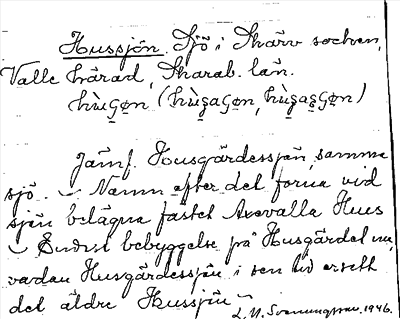 Hussjön. Sjö i Skärv socken,
Valle härad, Skarab. län.
Jämf. Husgärdessjön, samma
sjö. – Namn efter det forna vid
sjön belägna fästet Axevalla Hus
– Endast bebyggelse på Husgärdet nu,
vadan Husgärdessjön i sen tid ersatt
det äldre Hussjön –
L. M. Svenungsson. 1946.